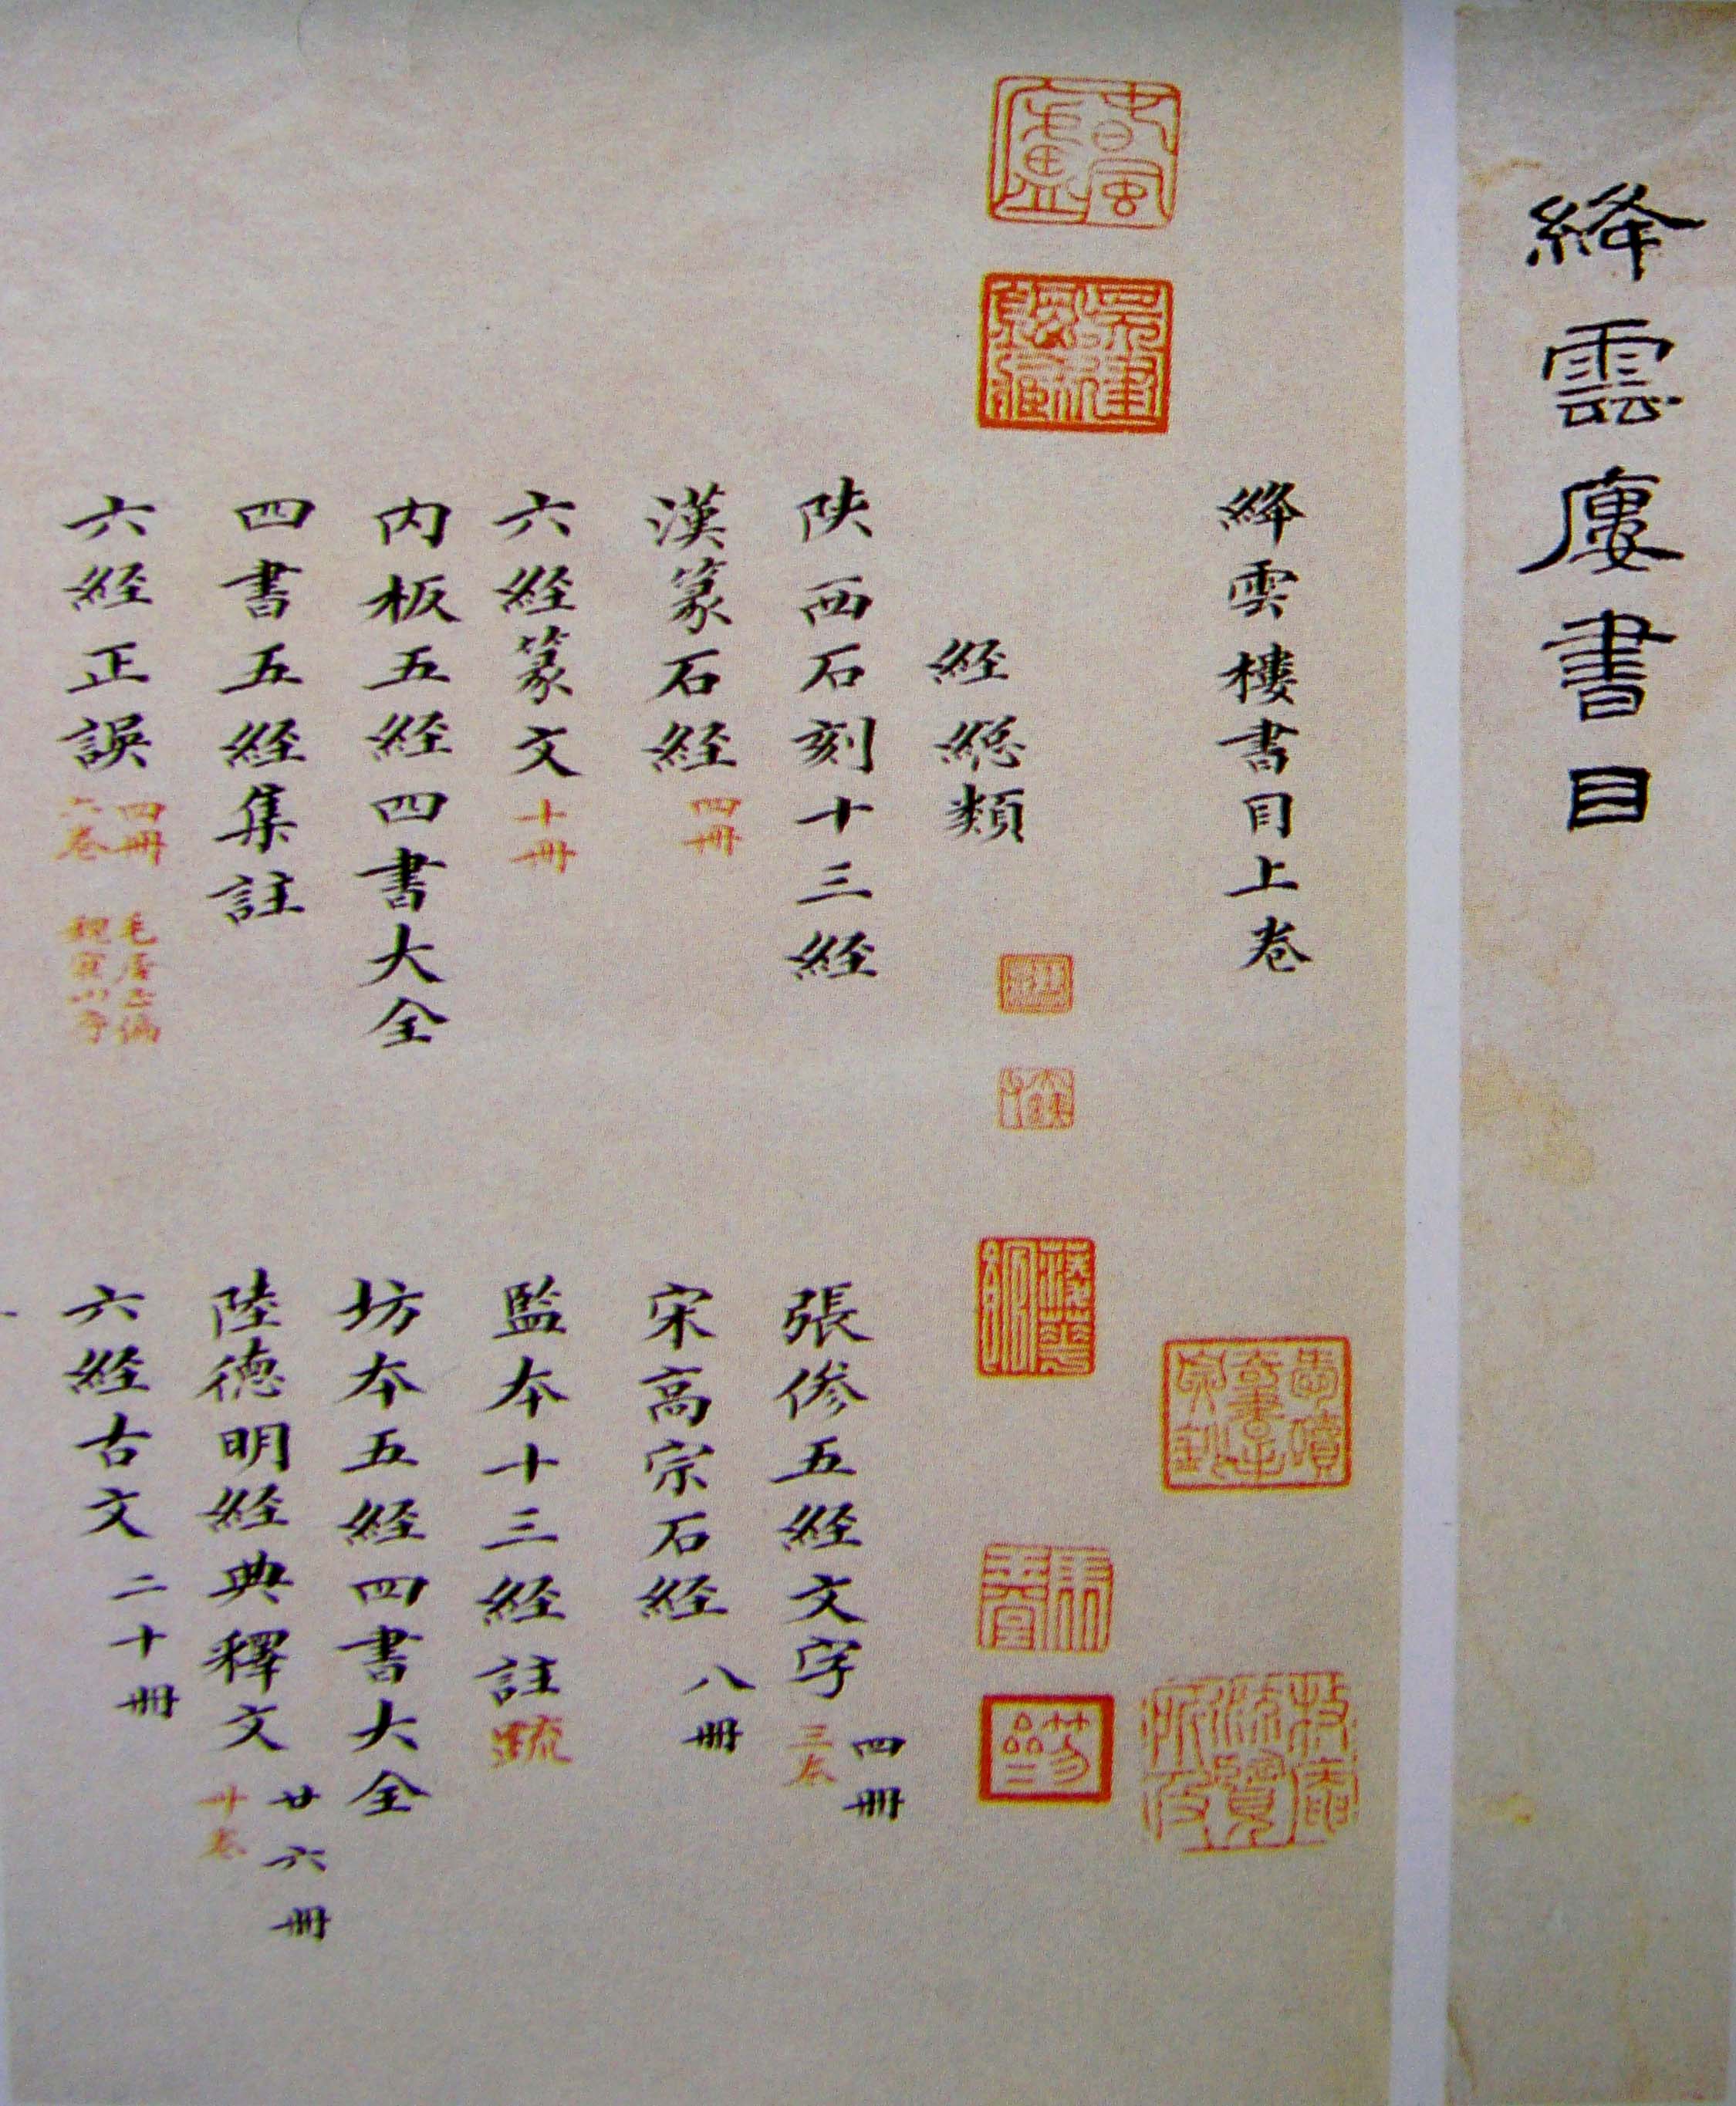 絳雲廔書目
絳雲樓書目上卷
経緫類
陝西石刻十三経
張㕘五経文字 四冊
三本
漢篆石経 四冊
宋高宗石経 八冊
六経篆文 十冊
監本十三経註疏
内板五経四書大全
坊本五経四書大全
四書五経集註
陸德明経典釋文 廿六冊
卅卷
六経正誤 四冊
六卷
毛居正
六経古文 二十冊